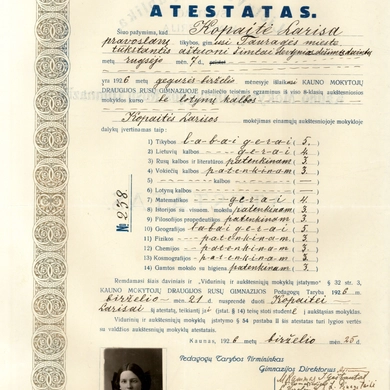 ATESTATAS.
Šiuo pažymima, kad Kopaitė Larisa
pravoslavų tikybos, gim. Tauragės mieste
tūkstantis aštuoni šimtai
metų rugsėjo mėn. 7 d.
1926 m. gegužės-birželio mėnesyje išlaikė KAUNO MOKYTOJŲ
DRAUGIJOS RUSŲ GIMNAZIJOJE pašaliečio teisėmis egzaminus iš viso 8-klasių aukštesniosios
mokyklos kurso be lotynų kalbos
Kopaitės Larisos mokėjimas einamųjų aukštesniojoje mokykloje
dalykų įvertinamas taip:
1) Tikybos labai gerai (5)
2) Lietuvių kalbos gerai (4)
3) Rusų kalbos ir literatūros patenkinam. (3)
4) Vokiečių kalbos patenkinam. (3)
5) kalbos
6) Lotynų kalbos
7) Matematikos gerai (4)
8) Istorijos su visuom. mokslu patenkinam. (3)
9) Filosofijos propedeutikos patenkinam. (3)
10) Geografijos labai gerai (5)
11) Fizikos patenkinam. (3)
12) Chemijos patenkinam. (3)
13) Kosmografijos patenkinam. (3)
14) Gamtos mokslo su higiena patenkinam. (3)
№ 238
Remdamasi šiais daviniais ir „Vidurinių ir aukštesniųjų mokyklų įstatymo“ § 32 str. 3,
KAUNO MOKYTOJŲ DRAUGIJOS RUSŲ GIMNAZIJOS Pedagogų Taryba 1926 m.
birželio mėn. 21 d. nusprendė duoti Kopaitei
Larisai šį atestatą, teikiantį jai (įstat. § 14) teisę stoti studentu
Vidurinių ir aukštesniųjų mokyklų įstatymo § 54 pastaba II šis atestatas turi lygios vertės
su valdžios aukštesniųjų mokyklų atestatais.
Kaunas, 1926 m. birželio mėn. 25 d.
Pedagogų Tarybos Pirmininkas
Gimnazijos Direktorius